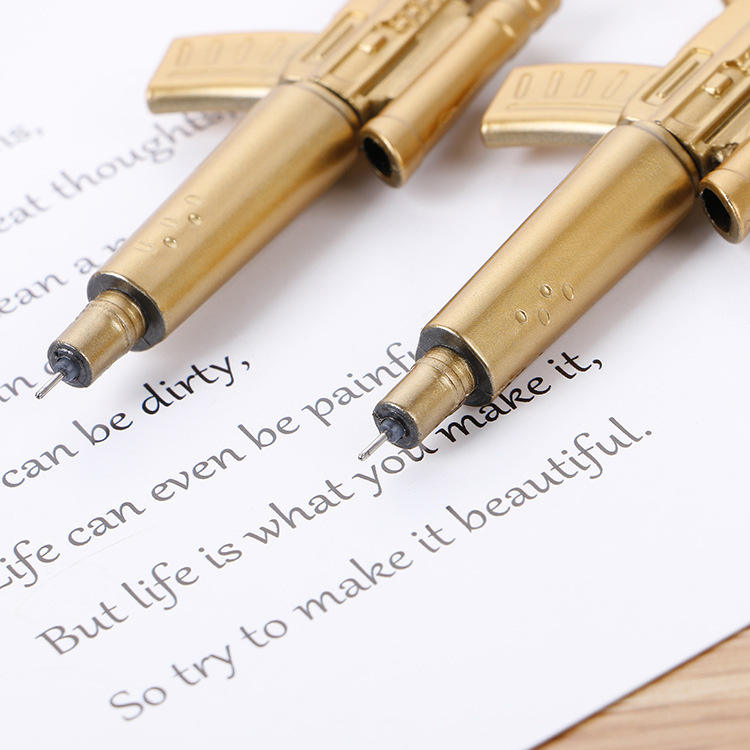 eat thoughts,
can be dirty,
Life can even be painf
But life is what you make it,
So try to make it beautiful.